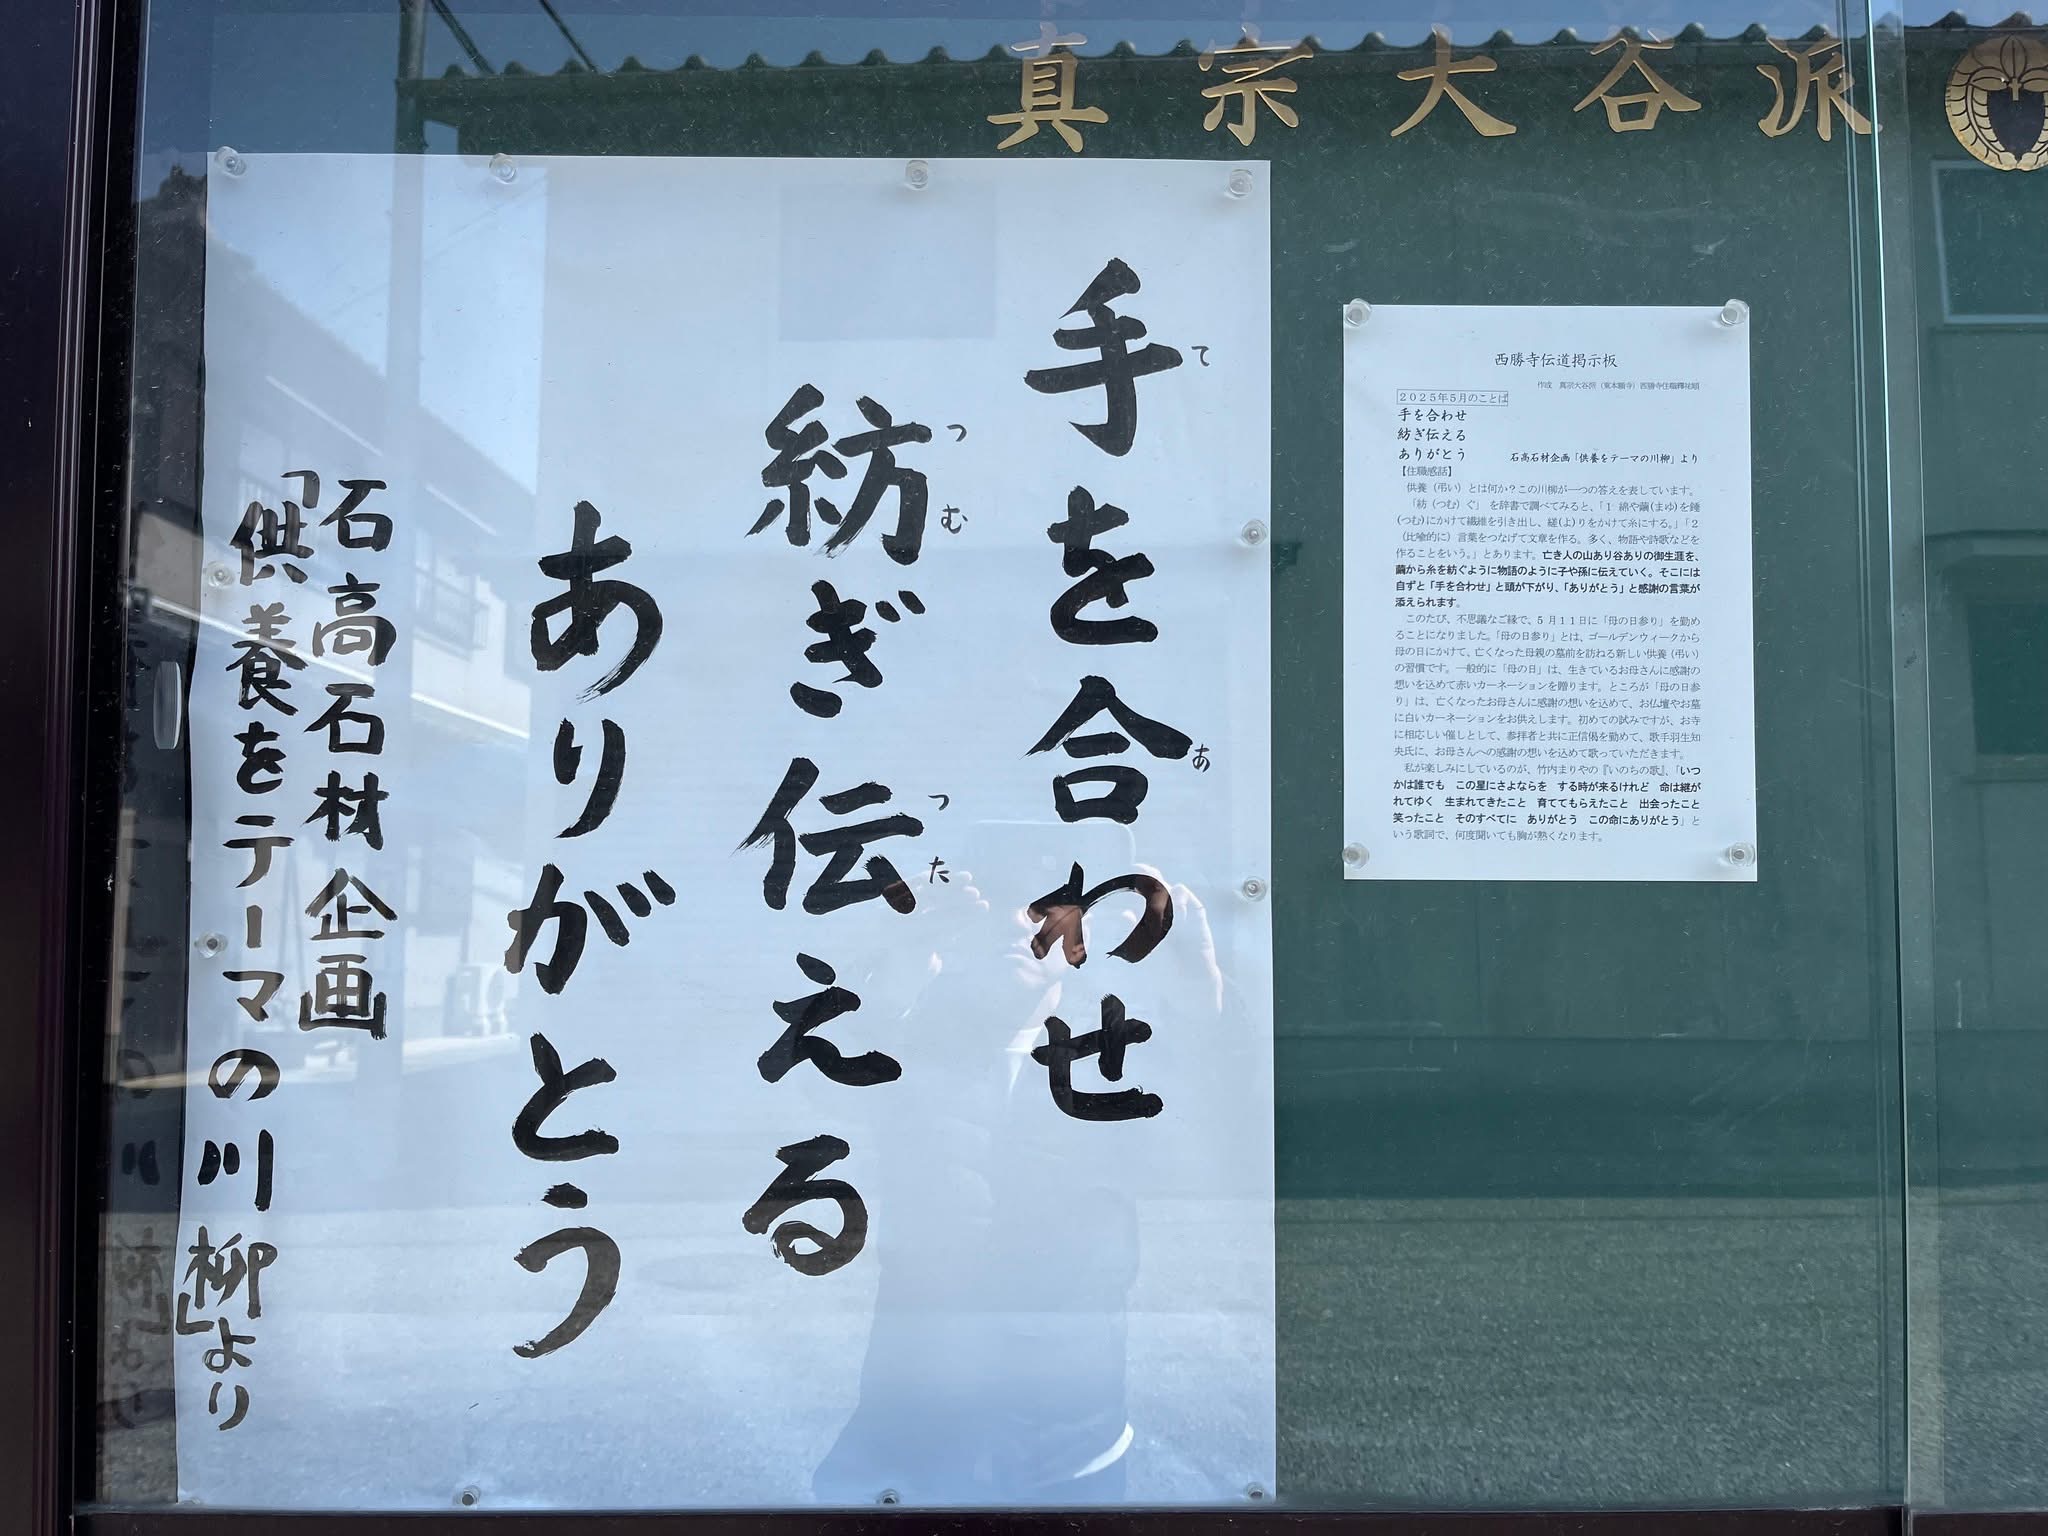 真宗大谷派
手を合わせ
て
あ
紡ぎ伝える
つむ
つた
ありがとう
石高石材企画
「供養をテーマの川柳」より
西勝寺伝道掲示板
作成 真宗大谷派(東本願寺)西勝寺住職釋祐順
2025年5月のことば
手を合わせ
紡ぎ伝える
ありがとう 石高石材企画「供養をテーマの川柳」より
【住職感話】
供養(弔い)とは何か?この川柳が一つの答えを表しています。
「紡(つむ)ぐ」を辞書で調べてみると、「1 綿や繭(まゆ)を錘
(つむ)にかけて繊維を引き出し、縒(よ)りをかけて糸にする。」「2
(比喩的に)言葉をつなげて文章を作る。多く、物語や詩歌などを
作ることをいう。」とあります。亡き人の山あり谷ありの御生涯を、
繭から糸を紡ぐように物語のように子や孫に伝えていく。そこには
自ずと「手を合わせ」と頭が下がり、「ありがとう」と感謝の言葉が
添えられます。
このたび、不思議なご縁で、5月11日に「母の日参り」を勤め
ることになりました。「母の日参り」とは、ゴールデンウィークから
母の日にかけて、亡くなった母親の墓前を訪ねる新しい供養(弔い)
の習慣です。一般的に「母の日」は、生きているお母さんに感謝の
想いを込めて赤いカーネーションを贈ります。ところが「母の日参
り」は、亡くなったお母さんに感謝の想いを込めて、お仏壇やお墓
に白いカーネーションをお供えします。初めての試みですが、お寺
に相応しい催しとして、参拝者と共に正信偈を勤めて、歌手羽生知
央氏に、お母さんへの感謝の想いを込めて歌っていただきます。
私が楽しみにしているのが、竹内まりやの『いのちの歌』、「いつ
かは誰でも この星にさよならを する時が来るけれど 命は継が
れてゆく 生まれてきたこと 育ててもらえたこと 出会ったこと
笑ったこと そのすべてに ありがとう この命にありがとう」と
いう歌詞で、何度聞いても胸が熱くなります。